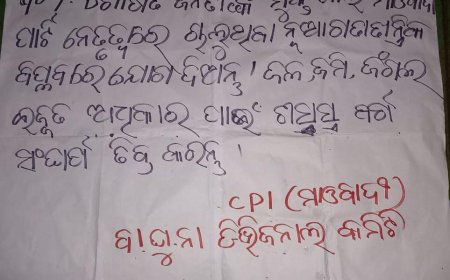 ପାର୍ଟି ନେତୃତ୍ୱରେ ଚାଲୁଥିବା ନୂଆଗଣତାନ୍ତ୍ରିକ
ବିପ୍ଳବରେ ଯୋଗ ଦିଅନ୍ତୁ । ଜଳ, ଜମି, ଜଙ୍ଗଲ
ଇଜ୍ଜତ ଅଧିକାର ପାଇଁ ଶସସ୍ତ୍ର ବର୍ଗ
ସଂଘର୍ଷ ତିବ୍ର କରନ୍ତୁ ।
CPI (ମାଓବାଦୀ)
ଡିଭିଜନାଲ କମିଟି